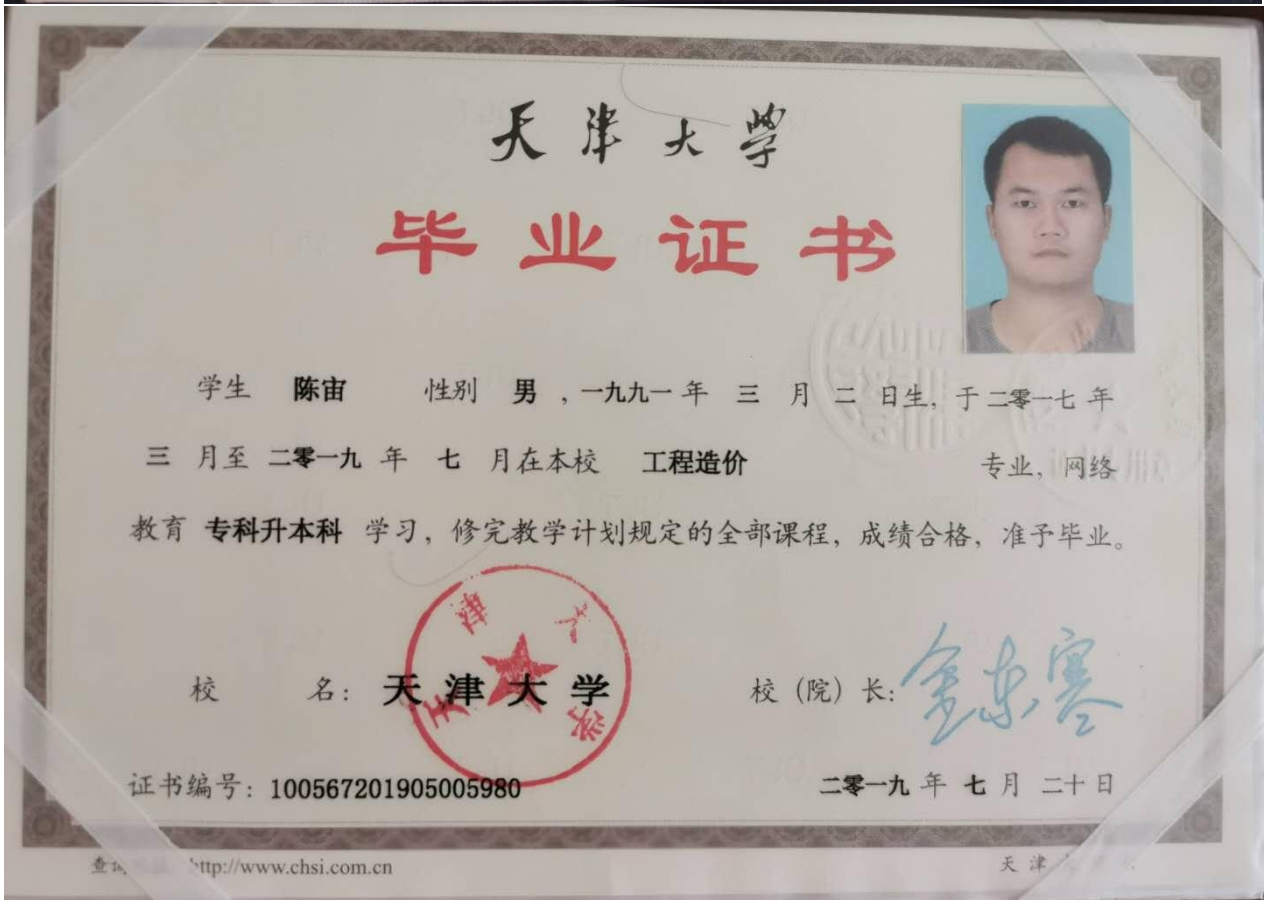 天津大学
毕业证书
学生 陈宙 性别 男 ,一九九一年 三 月 二 日生, 于二零一七年
三 月至 二零一九 年 七 月在本校 工程造价 专业, 网络
教育 专科升本科 学习, 修完教学计划规定的全部课程, 成绩合格, 准予毕业。
天津大学
校 名: 天津大学 校 (院) 长: 金东寒
证书编号: 100567201905005980 二零一九 年 七 月 二十 日
http://www.chsi.com.cn 天津